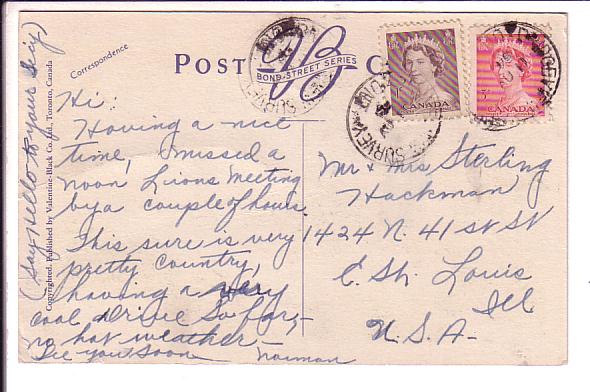 Correspondence
POST C
VB
BOND-STREET SERIES
CANADA
CANADA
SURVEY
Hi.
Having a nice
time, missed a
noon Lions meeting
by a couple of hours.
This sure is very
pretty country,
having a very
cool drive so far, -
no hot weather -
See you soon
Norman
(Say Hello to your Guy)
Copyrighted. Published by Valentine-Black Co. Ltd., Toronto, Canada
Mr & Mrs Sterling
Hackman
1424 N. 41st St
E. St. Louis
Ill
U.S.A-